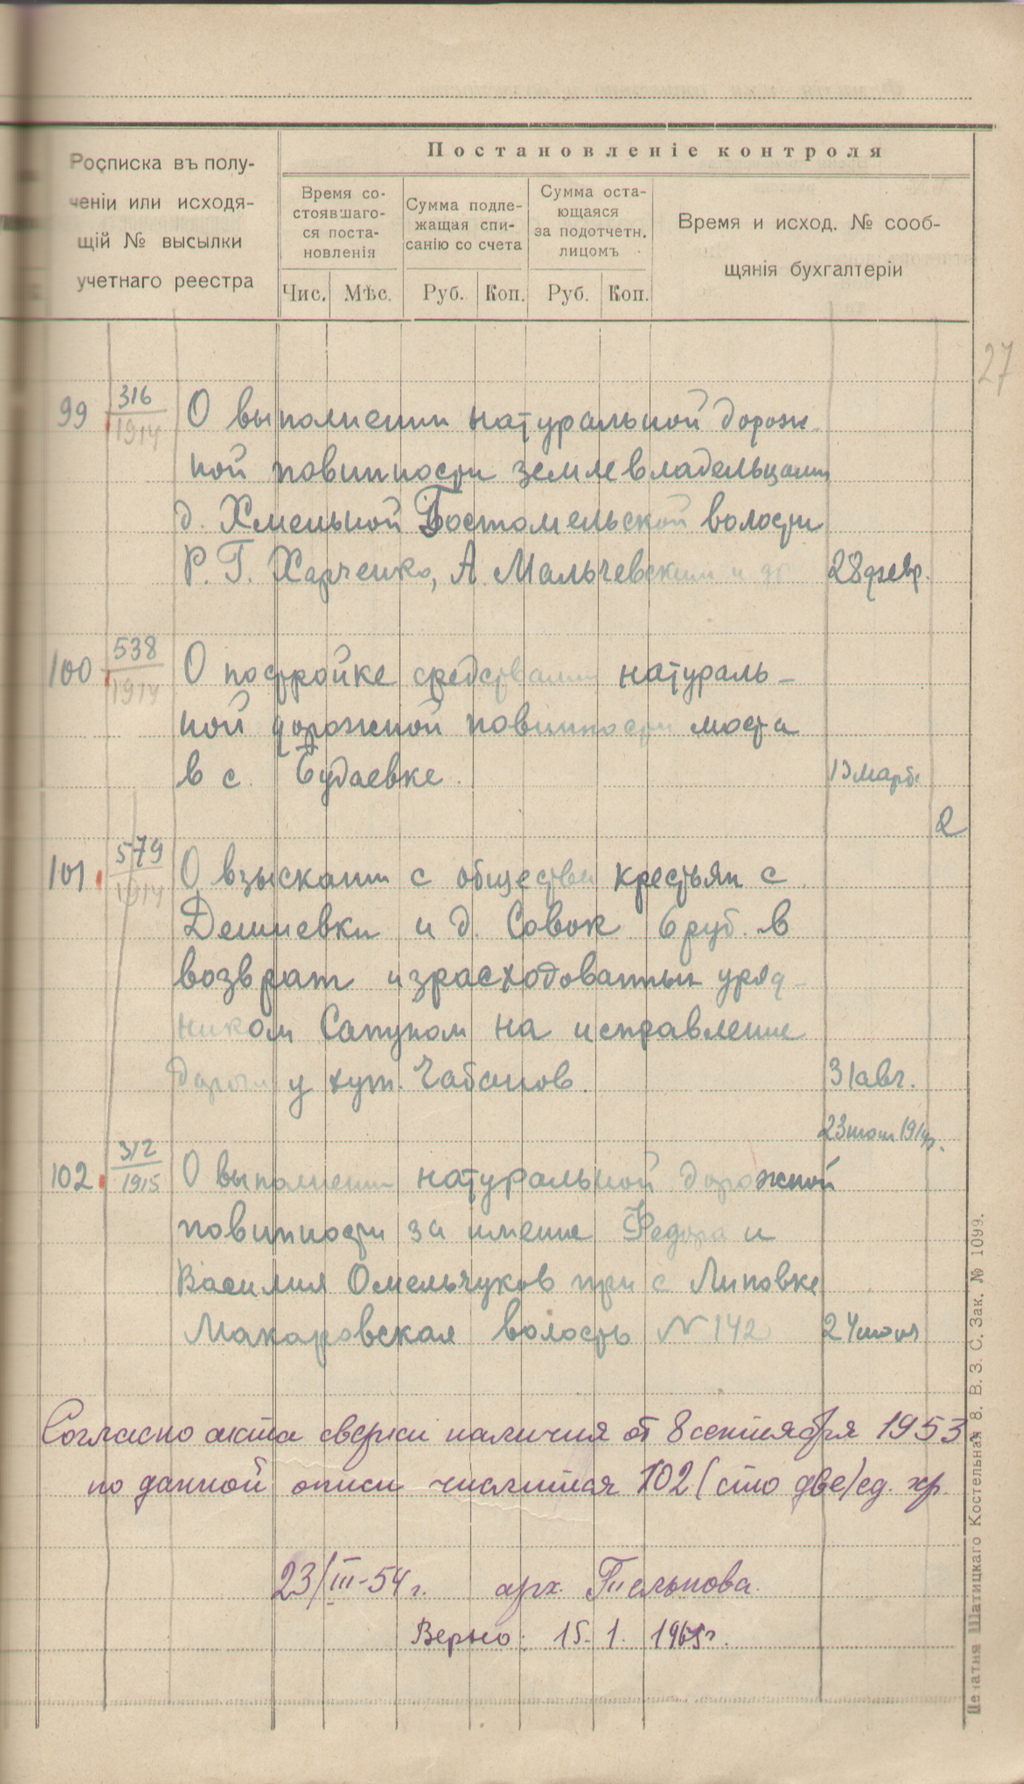 Росписка въ полу-
ченіи или исходя-
щій № высылки
учетнаго реестра
Постановленіе контроля
Время со-
стоявшаго-
ся поста-
новленія
Сумма подле-
жащая спи-
санію со счета
Сумма оста-
ющаяся
за подотчетн.
лицомъ
Время и исход. № сооб-
щянія бухгалтеріи
Чис. Мѣс. Руб. Коп. Руб. Коп.
27
99 316/1914 О выполнении натуральной дорож-
ной повинности землевладельцами
д. Хмельной Гостомельской волости
Р. Г. Харченко, А Мальчевским и др 28 февр.
100 538/1914 О постройке средствами натураль-
ной дорожной повинности моста
в с. Будаевке. 13 март.
2
101. 579/1914 О взыскании с общества крестьян с.
Дешиевки и д. Совок 6 руб. в
возврат израсходованных уряд-
ником Сапуном на исправление
дороги у хут. Чабанов. 31 авг.
102. 312/1915 О выполнении натуральной дорожной 23 июля 1914г.
повинности за имение Федора и
Василия Омельчуков при с Липовке
Макаровская волость № 142 24 июля
Согласно акта сверки наличия от 8 сентября 1953.
по данной описи числится 102 (сто две) ед. хр.
23/III-54 г. арх.
Верно: 15. 1. 1965г.
Печатня Шатицкаго Костельная 8. В. З. С. Зак. № 1099.